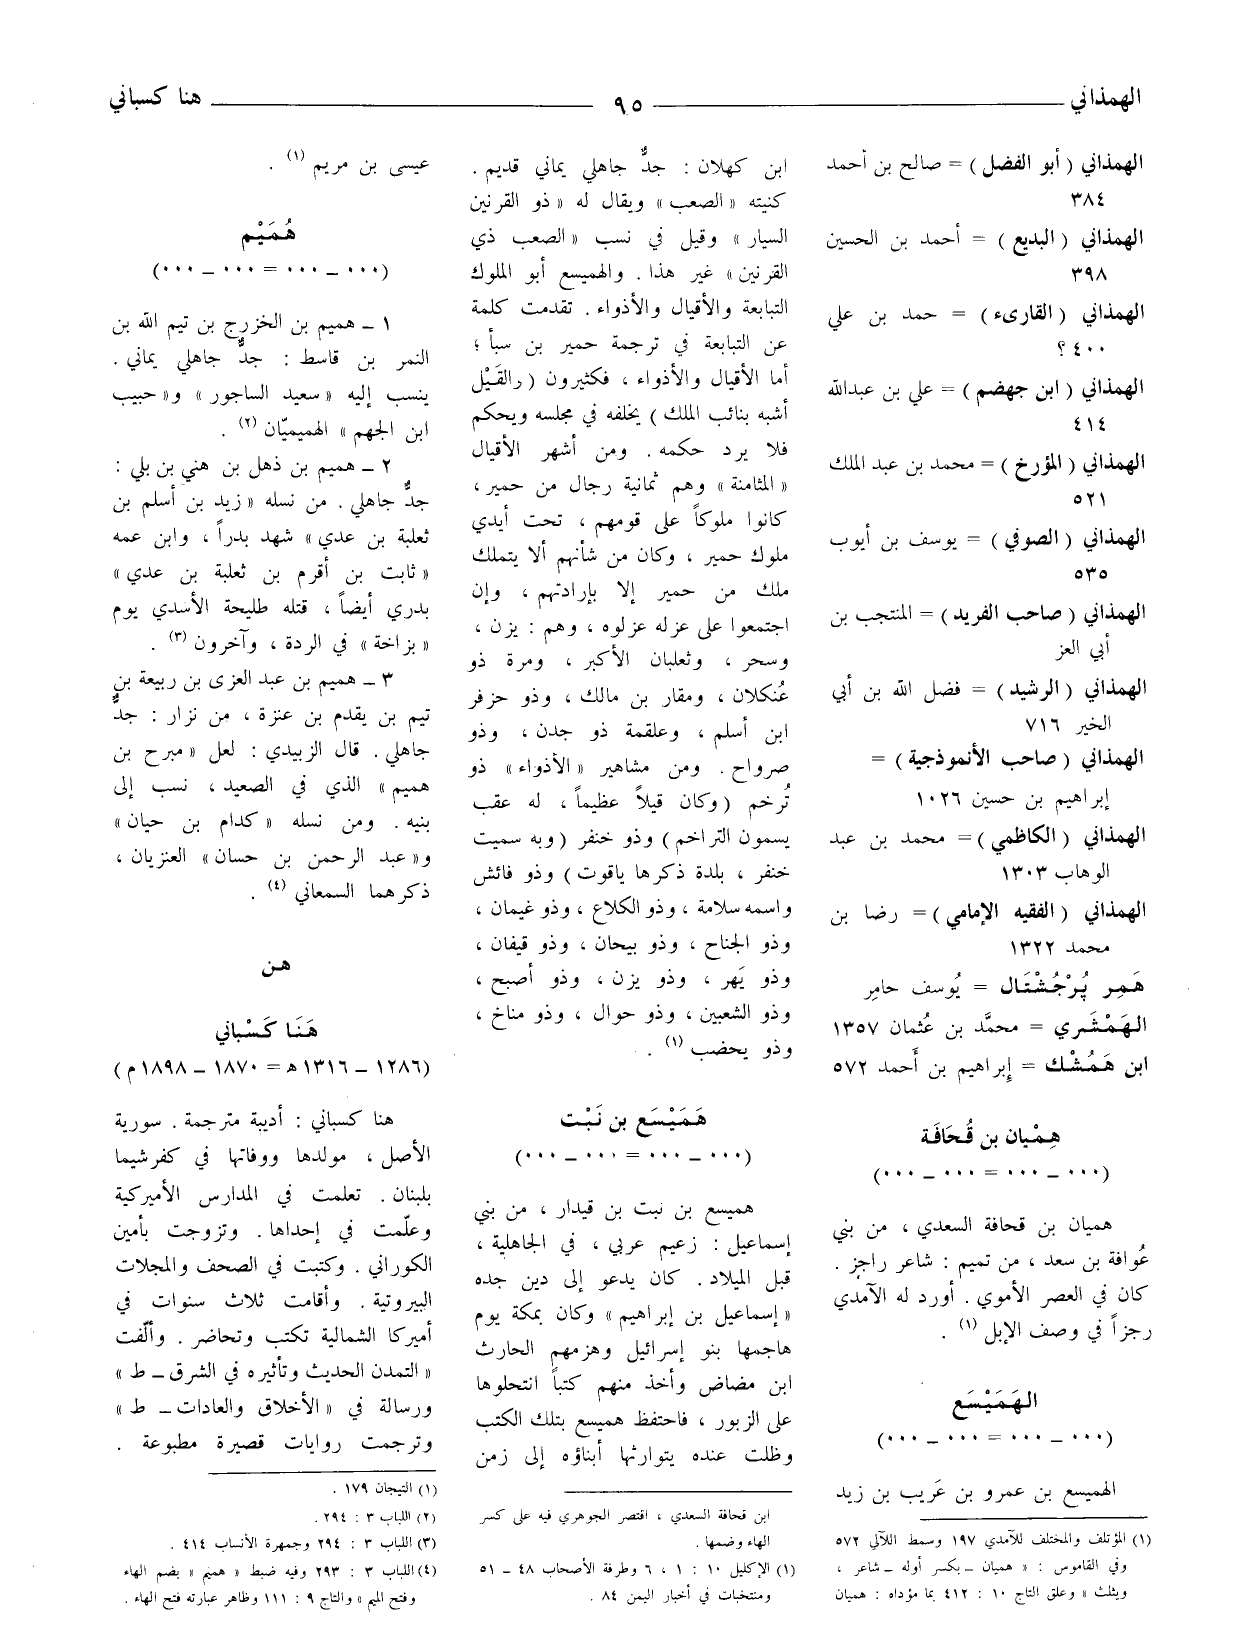 الهمذاني ٩٥ هنا كسباني
الهمذاني ( أبو الفضل ) = صالح بن أحمد
٣٨٤
الهمذاني ( البديع ) = أحمد بن الحسين
٣٩٨
الهمذاني ( القارىء ) = حمد بن علي
٤٠٠ ؟
الهمذاني ( ابن جهضم ) = علي بن عبدالله
٤١٤
الهمذاني ( المؤرخ ) = محمد بن عبد الملك
٥٢١
الهمذاني ( الصوفي ) = يوسف بن أيوب
٥٣٥
الهمذاني ( صاحب الفريد ) = المنتجب بن
أبي العز
الهمذاني ( الرشيد ) = فضل الله بن أبي
الخير ٧١٦
الهمذاني ( صاحب الأنموذجية ) =
إبراهيم بن حسين ١٠٢٦
الهمذاني ( الكاظمي ) = محمد بن عبد
الوهاب ١٣٠٣
الهمذاني ( الفقيه الإمامي ) = رضا بن
محمد ١٣٢٢
هَمِر پُرْجُشْتَال = يُوسف حامِر
الهَمْشَري = محمَّد بن عُثمان ١٣٥٧
ابن هَمُشْك = إبراهيم بن أَحمد ٥٧٢
هِمْيان بن قُحَافَة
(٠٠٠ ـ ٠٠٠ = ٠٠٠ ـ ٠٠٠)
هميان بن قحافة السعدي ، من بني
عُوافة بن سعد ، من تميم : شاعر راجز .
كان في العصر الأموي . أورد له الآمدي
رجزاً في وصف الإبل (١) .
الهَمَيْسَع
(٠٠٠ ـ ٠٠٠ = ٠٠٠ ـ ٠٠٠)
الهميسع بن عمرو بن عَريب بن زيد
(١) المؤتلف والمختلف للآمدي ١٩٧ وسمط اللآلي ٥٧٢
وفي القاموس : « هميان ـ بكسر أوله ـ شاعر ،
ويثلث » وعلق التاج ١٠ : ٤١٢ بما مؤداه : هميان
ابن كهلان : جدٌّ جاهلي يماني قديم .
كنيته « الصعب » ويقال له « ذو القرنين
السيار » وقيل في نسب « الصعب ذي
القرنين » غير هذا . والهميسع أبو الملوك
التبابعة والأقيال والأذواء . تقدمت كلمة
عن التبابعة في ترجمة حمير بن سبأ ؛
أما الأقيال والأذواء ، فكثيرون ( والقَيْل
أشبه بنائب الملك ) يخلفه في مجلسه ويحكم
فلا يرد حكمه . ومن أشهر الأقيال
« المثامنة » وهم ثمانية رجال من حمير ،
كانوا ملوكاً على قومهم ، تحت أيدي
ملوك حمير ، وكان من شأنهم ألا يتملك
ملك من حمير إلا بإرادتهم ، وإن
اجتمعوا على عزله عزلوه ، وهم : يزن ،
وسحر ، وثعلبان الأكبر ، ومرة ذو
عُثكلان ، ومقار بن مالك ، وذو حزفر
ابن أسلم ، وعلقمة ذو جدن ، وذو
صرواح . ومن مشاهير « الأذواء » ذو
تُرخم ( وكان قيلاً عظيماً ، له عقب
يسمون التراخم ) وذو خنفر ( وبه سميت
خنفر ، بلدة ذكرها ياقوت ) وذو فائش
واسمه سلامة ، وذو الكلاع ، وذو غيمان ،
وذو الجناح ، وذو بيحان ، وذو قيفان ،
وذو يَهر ، وذو يزن ، وذو أصبح ،
وذو الشعبين ، وذو حوال ، وذو مناخ ،
وذو يحضب (١) .
هَمَيْسَع بن نَبْت
(٠٠٠ ـ ٠٠٠ = ٠٠٠ ـ ٠٠٠)
هميسع بن نبت بن قيدار ، من بني
إسماعيل : زعيم عربي ، في الجاهلية ،
قبل الميلاد . كان يدعو إلى دين جده
« إسماعيل بن إبراهيم » وكان بمكة يوم
هاجمها بنو إسرائيل وهزمهم الحارث
ابن مضاض وأخذ منهم كتباً انتحلوها
على الزبور ، فاحتفظ هميسع بتلك الكتب
وظلت عنده يتوارثها أبناؤه إلى زمن
ابن قحافة السعدي ، اقتصر الجوهري فيه على كسر
الهاء وضمها .
(١) الإكليل ١٠ : ١ ، ٦ وطرفة الأصحاب ٤٨ ـ ٥١
ومنتخبات في أخبار اليمن ٨٤ .
عيسى بن مريم (١) .
هُمَيْم
(٠٠٠ ـ ٠٠٠ = ٠٠٠ ـ ٠٠٠)
١ ـ هميم بن الخزرج بن تيم الله بن
النمر بن قاسط : جدٌّ جاهلي يماني .
ينسب إليه « سعيد الساجور » و« حبيب
ابن الجهم » الهميميّان (٢) .
٢ ـ هميم بن ذهل بن هني بن بلي :
جدٌّ جاهلي . من نسله « زيد بن أسلم بن
ثعلبة بن عدي » شهد بدراً ، وابن عمه
« ثابت بن أقرم بن ثعلبة بن عدي »
بدري أيضاً ، قتله طليحة الأسدي يوم
« بزاخة » في الردة ، وآخرون (٣) .
٣ ـ هميم بن عبد العزى بن ربيعة بن
تيم بن يقدم بن عنزة ، من نزار : جدٌّ
جاهلي . قال الزبيدي : لعل « مبرح بن
هميم » الذي في الصعيد ، نسب إلى
بنيه . ومن نسله « كدام بن حيان »
و« عبد الرحمن بن حسان » العنزيان ،
ذكرهما السمعاني (٤) .
هن
هَنَا كَسْباني
(١٢٨٦ ـ ١٣١٦ ه‍ = ١٨٧٠ ـ ١٨٩٨ م)
هنا كسباني : أديبة مترجمة . سورية
الأصل ، مولدها ووفاتها في كفرشيما
بلبنان . تعلمت في المدارس الأميركية
وعلّمت في إحداها . وتزوجت بأمين
الكوراني . وكتبت في الصحف والمجلات
البيروتية . وأقامت ثلاث سنوات في
أميركا الشمالية تكتب وتحاضر . وألّفت
« التمدن الحديث وتأثيره في الشرق ـ ط »
ورسالة في « الأخلاق والعادات ـ ط »
وترجمت روايات قصيرة مطبوعة .
(١) التيجان ١٧٩ .
(٢) اللباب ٣ : ٢٩٤ .
(٣) اللباب ٣ : ٢٩٤ وجمهرة الأنساب ٤١٤ .
(٤) اللباب ٣ : ٢٩٣ وفيه ضبط « هميم » بضم الهاء
وفتح الميم » والتاج ٩ : ١١١ وظاهر عبارته فتح الهاء .